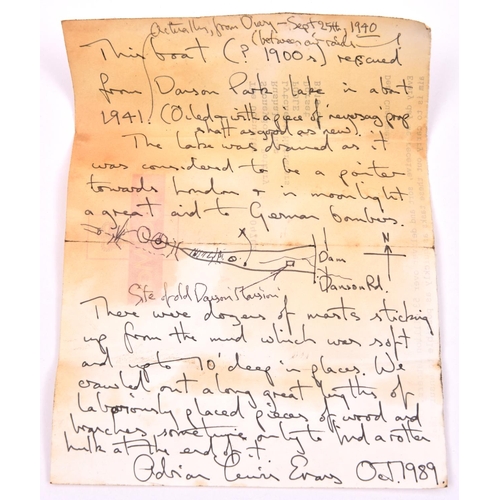 Actually, from Diary - Sept 25th, 1940
(between air raids)
This boat (? 1900s) rescued
from Danson Park lake in about
1941. (Oiled with a piece of reversing prop
shaft as good as new).
The lake was drained as it
was considered to be a pointer
towards London + in moonlight
a great aid to German bombers.
x
Dam
N
Danson Rd.
Site of old Danson Mansion
There were dozens of masts sticking
up from the mud which was soft
and upto 10' deep in places. We
crawled out along great lengths of
laboriously placed pieces of wood and
branches sometimes only to find a rotten
hulk at the end of it.
Adrian Lewis Evans Oct. 1989